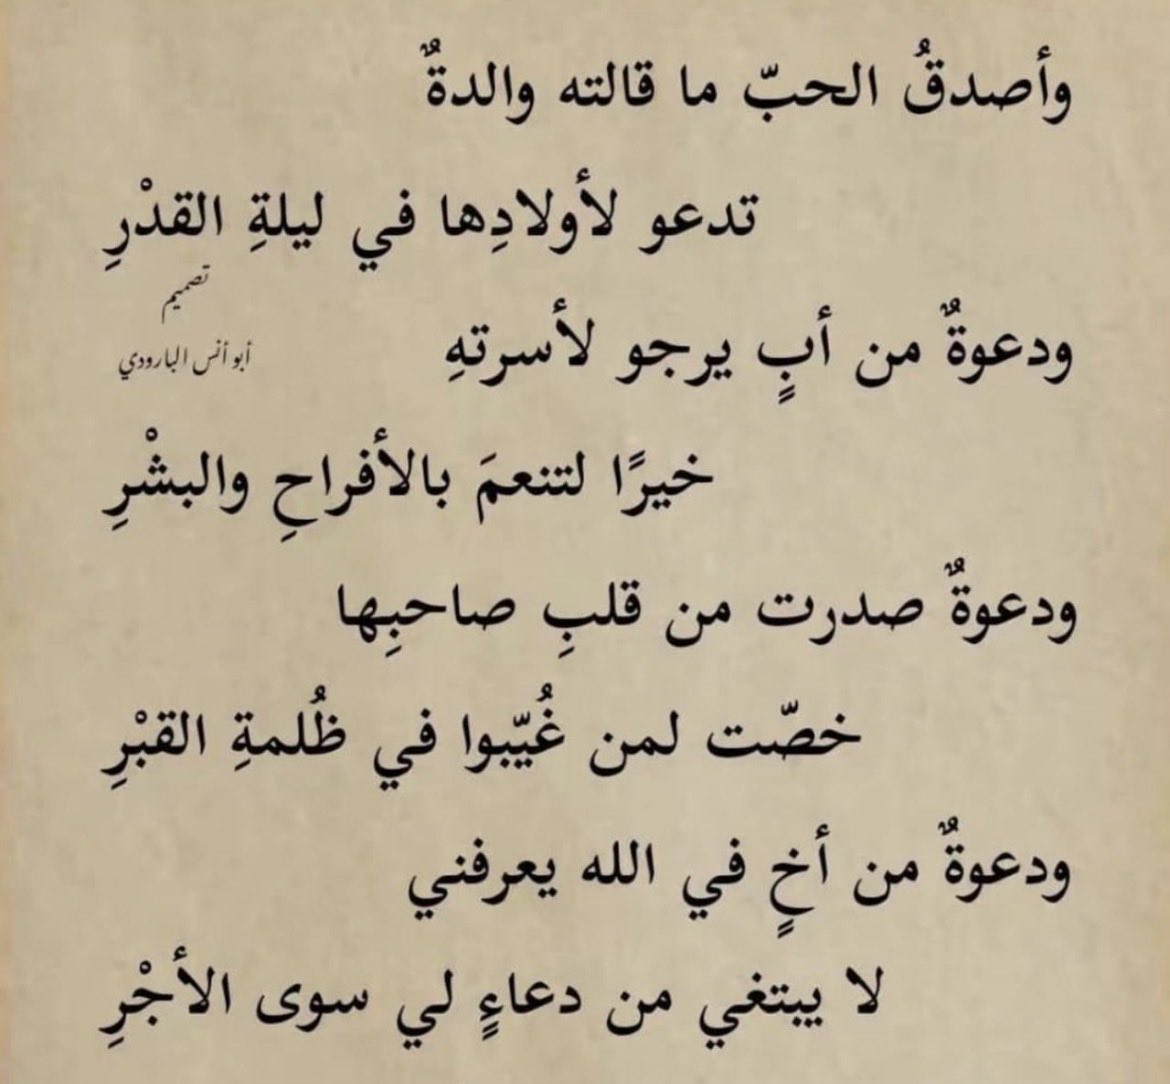 وأصدقُ الحبّ ما قالته والدةٌ
تدعو لأولادِها في ليلةِ القدْرِ
تصميم
أبو أنس البارودي
ودعوةٌ من أبٍ يرجو لأسرتهِ
خيرًا لتنعمَ بالأفراحِ والبشْرِ
ودعوةٌ صدرت من قلبِ صاحبِها
خصّت لمن غُيّبوا في ظُلمةِ القبْرِ
ودعوةٌ من أخٍ في الله يعرفني
لا يبتغي من دعاءٍ لي سوى الأجْرِ